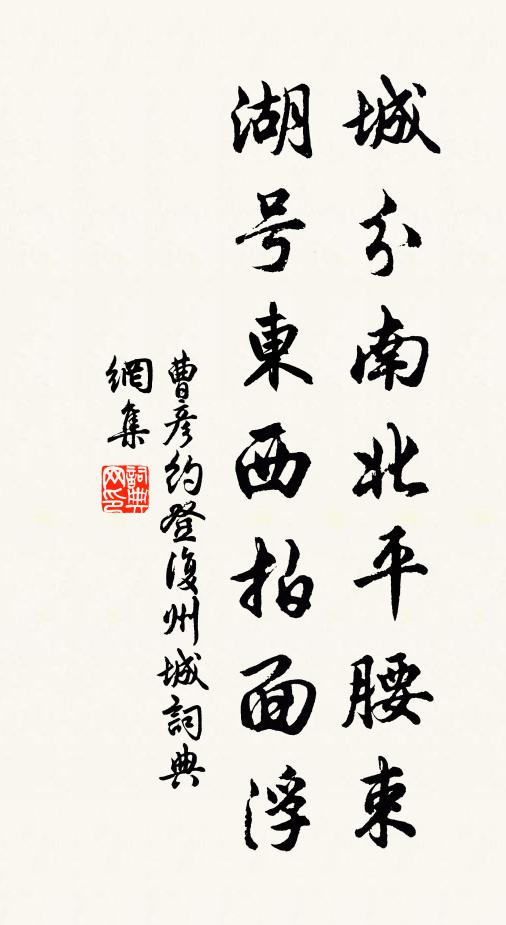 城分南北平腰束
湖号東西拍面浮
曹彦約登復州城詞典
網集
詞典網印